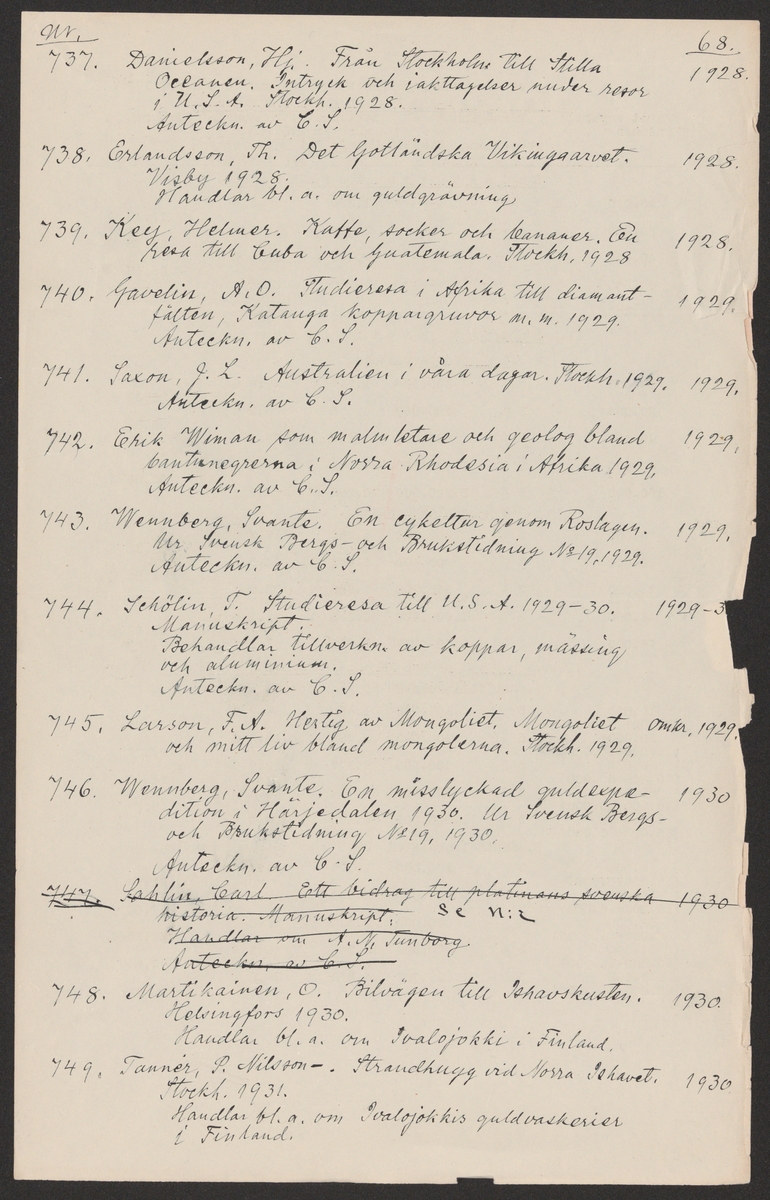 Nr. 68.
737. Danielsson, Hj. Från Stockholm till Stilla 1928.
Oceanen. Intryck och iakttagelser under resor
i U.S.A. Stockh. 1928.
Anteckn. av C.S.
738. Erlandsson, Th. Det Gotländska Vikingaarvet. 1928.
Visby 1928.
Handlar bl.a. om guldgrävning
739. Key, Helmer. Kaffe, socker och bananer. En 1928.
resa till Cuba och Guatemala. Stockh, 1928
740. Gavelin, A.O. Studieresa i Afrika till diamant- 1929.
fälten, Katanga koppargruvor m.m. 1929.
Anteckn. av C.S.
741. Saxon, J.L. Australien i våra dagar. Stockh. 1929. 1929.
Anteckn. av C.S.
742. Erik Wiman som malmletare och geolog bland 1929.
bantunegrerna i Norra Rhodesia i Afrika 1929.
Anteckn. av C.S.
743. Wennberg, Svante. En cykeltur genom Roslagen. 1929.
Ur Svensk Bergs- och Brukstidning No 19, 1929.
Anteckn. av C.S.
744. Schölin, T. Studieresa till U.S.A. 1929-30. 1929-3
Manuskript.
Behandlar tillverkn. av koppar, mässing
och aluminium.
Anteckn. av C.S.
745. Larson, F.A. Hertig av Mongoliet. Mongoliet omkr. 1929.
och mitt liv bland mongolerna. Stockh. 1929.
746. Wennberg, Svante. En misslyckad guldexpe- 1930
dition i Härjedalen 1930. Ur Svensk Bergs-
och Brukstidning No 19, 1930.
Anteckn. av C.S.
747. Sahlin, Carl. Ett bidrag till platinans svenska 1930
historia. Manuskript. Se N:2
Handlar om A.N. Tunborg.
Anteckn. av C.S.
748. Martikainen, O. Bilvägen till Ishavskusten. 1930.
Helsingfors 1930.
Handlar bl.a. om Ivalojokki i Finland.
749. Tannér, P. Nilsson-. Strandhugg vid Norra Ishavet. 1930
Stockh. 1931.
Handlar bl.a. om Ivalojokkis guldvaskerier
i Finland.